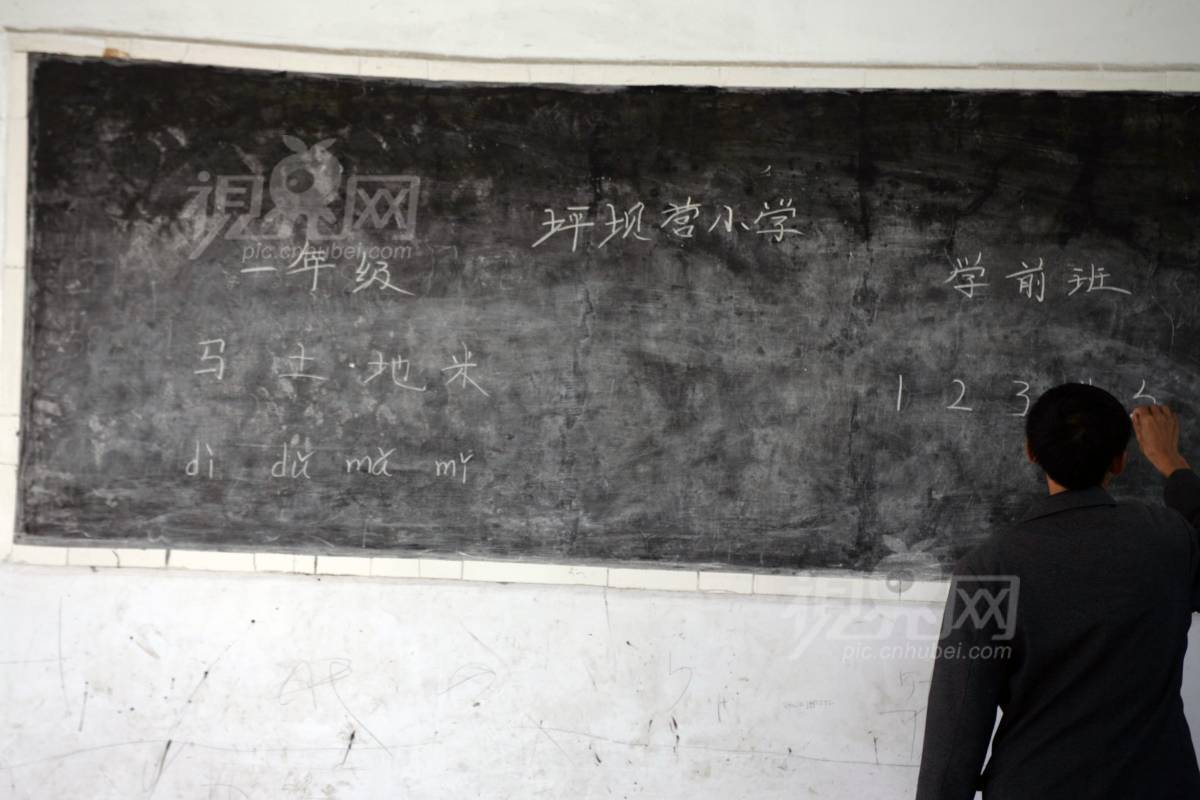 坪坝营小学
一年级
学前班
马 土 地 米
1 2 3 5
dì dǔ mǎ mǐ
视界网
pic.cnhubei.com
视界网
pic.cnhubei.com